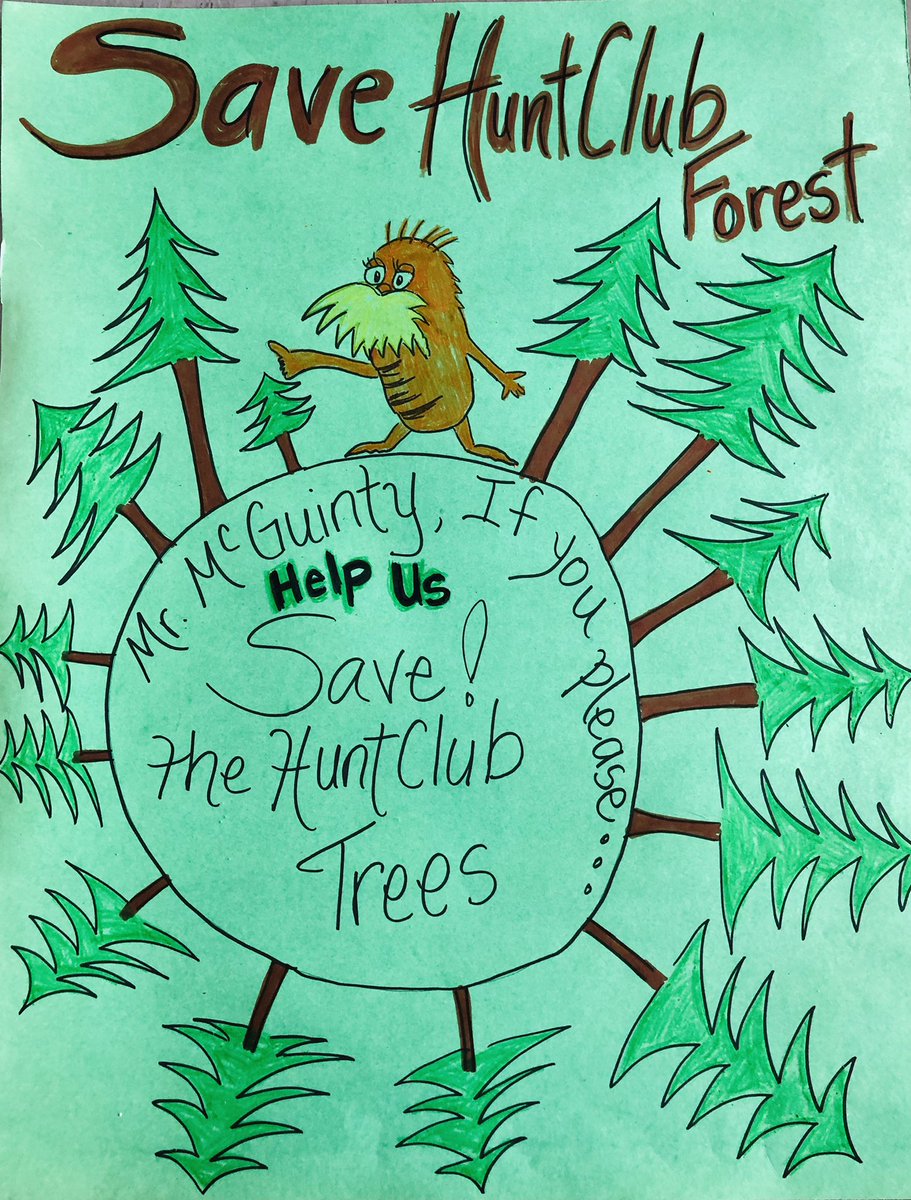 Save HuntClub
Forest
Mr. McGuinty, If you please....
Help Us
Save!
the HuntClub
Trees